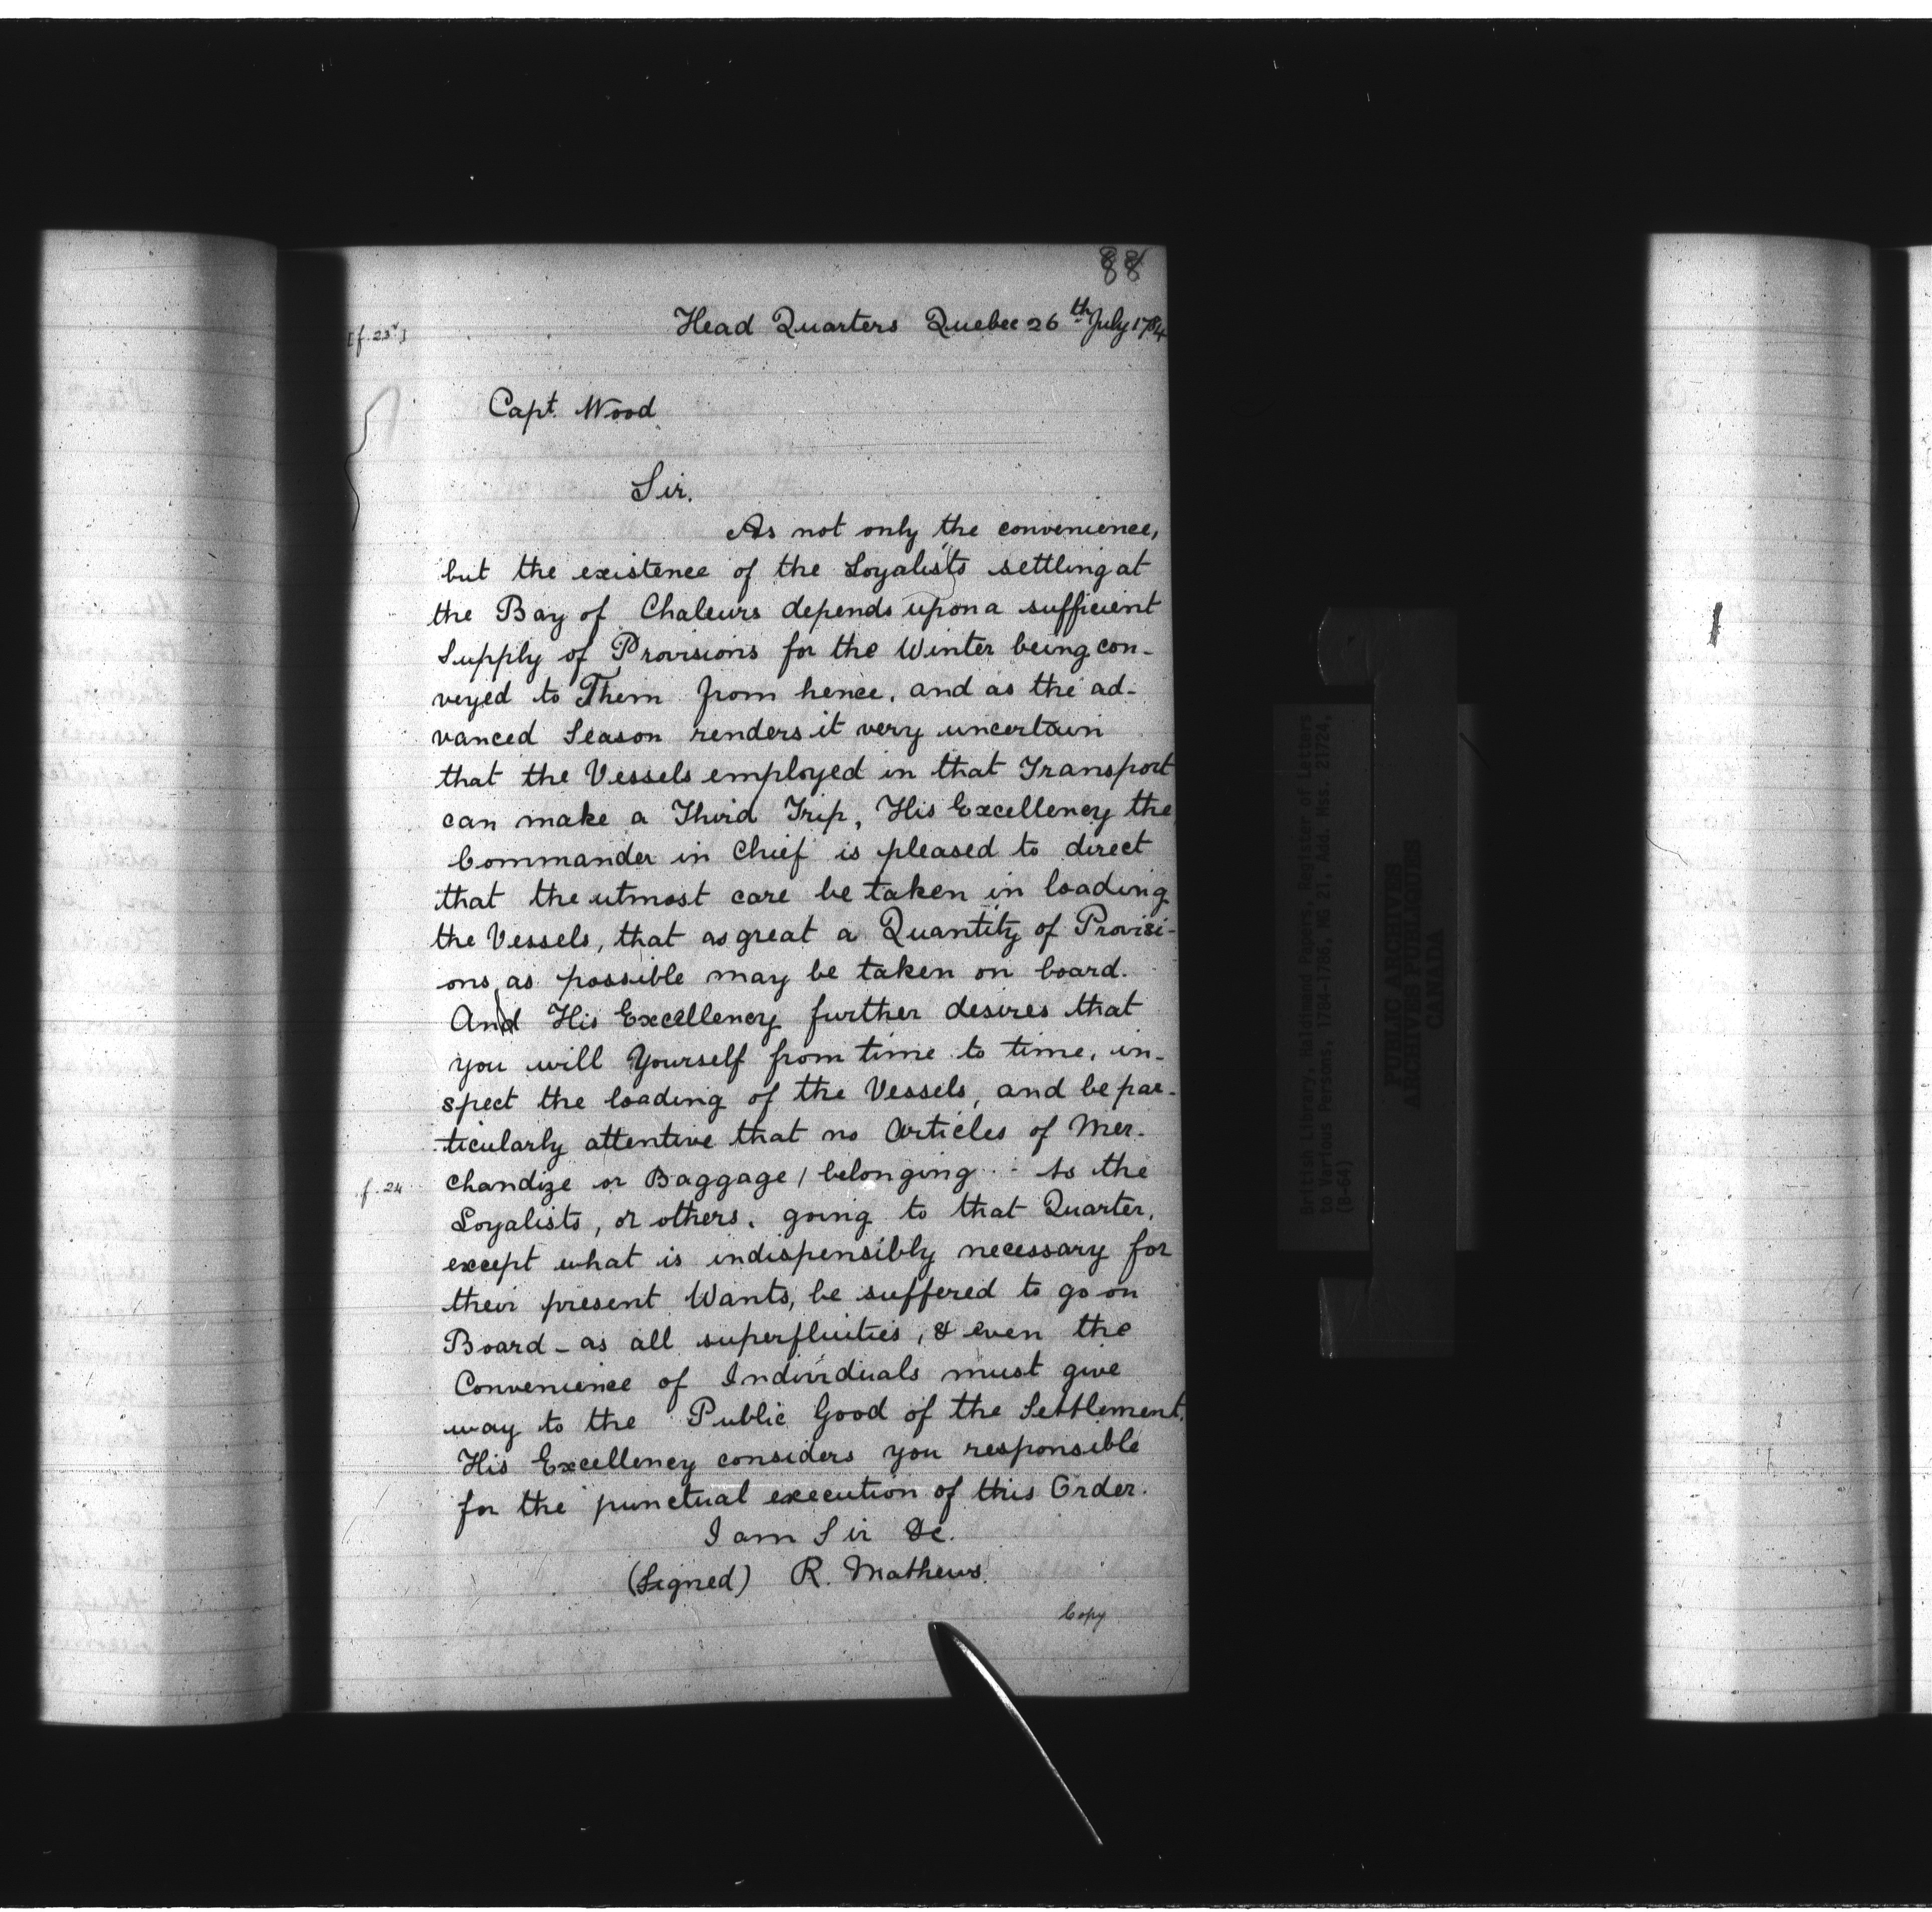 88
Head Quarters Quebec 26th July 1784
[f. 23v]
Capt. Wood
Sir.
As not only the convenience,
but the existence of the Loyalists settling at
the Bay of Chaleurs depends upon a sufficient
Supply of Provisions for the Winter being con-
veyed to Them from hence, and as the ad-
vanced Season renders it very uncertain
that the Vessels employed in that Transport
can make a Third Trip, His Excellency the
Commander in Chief is pleased to direct
that the utmost care be taken in loading
the Vessels, that as great a Quantity of Provisi-
ons as possible may be taken on board.
And His Excellency further desires that
you will Yourself from time to time, in-
spect the loading of the Vessels, and be par-
ticularly attentive that no Articles of Mer-
f. 24 chandize or Baggage / belonging to the
Loyalists, or others, going to that Quarter,
except what is indispensibly necessary for
their present Wants, be suffered to go on
Board - as all superfluities, & even the
Convenience of Individuals must give
way to the Public Good of the Settlement.
His Excellency considers you responsible
for the punctual execution of this Order.
I am Sir &c.
(Signed) R. Mathews
Copy
British Library, Haldimand Papers, Register of Letters
to Various Persons, 1784-1786, MG 21, Add. Mss. 21724,
(B-64)
PUBLIC ARCHIVES
ARCHIVES PUBLIQUES
CANADA